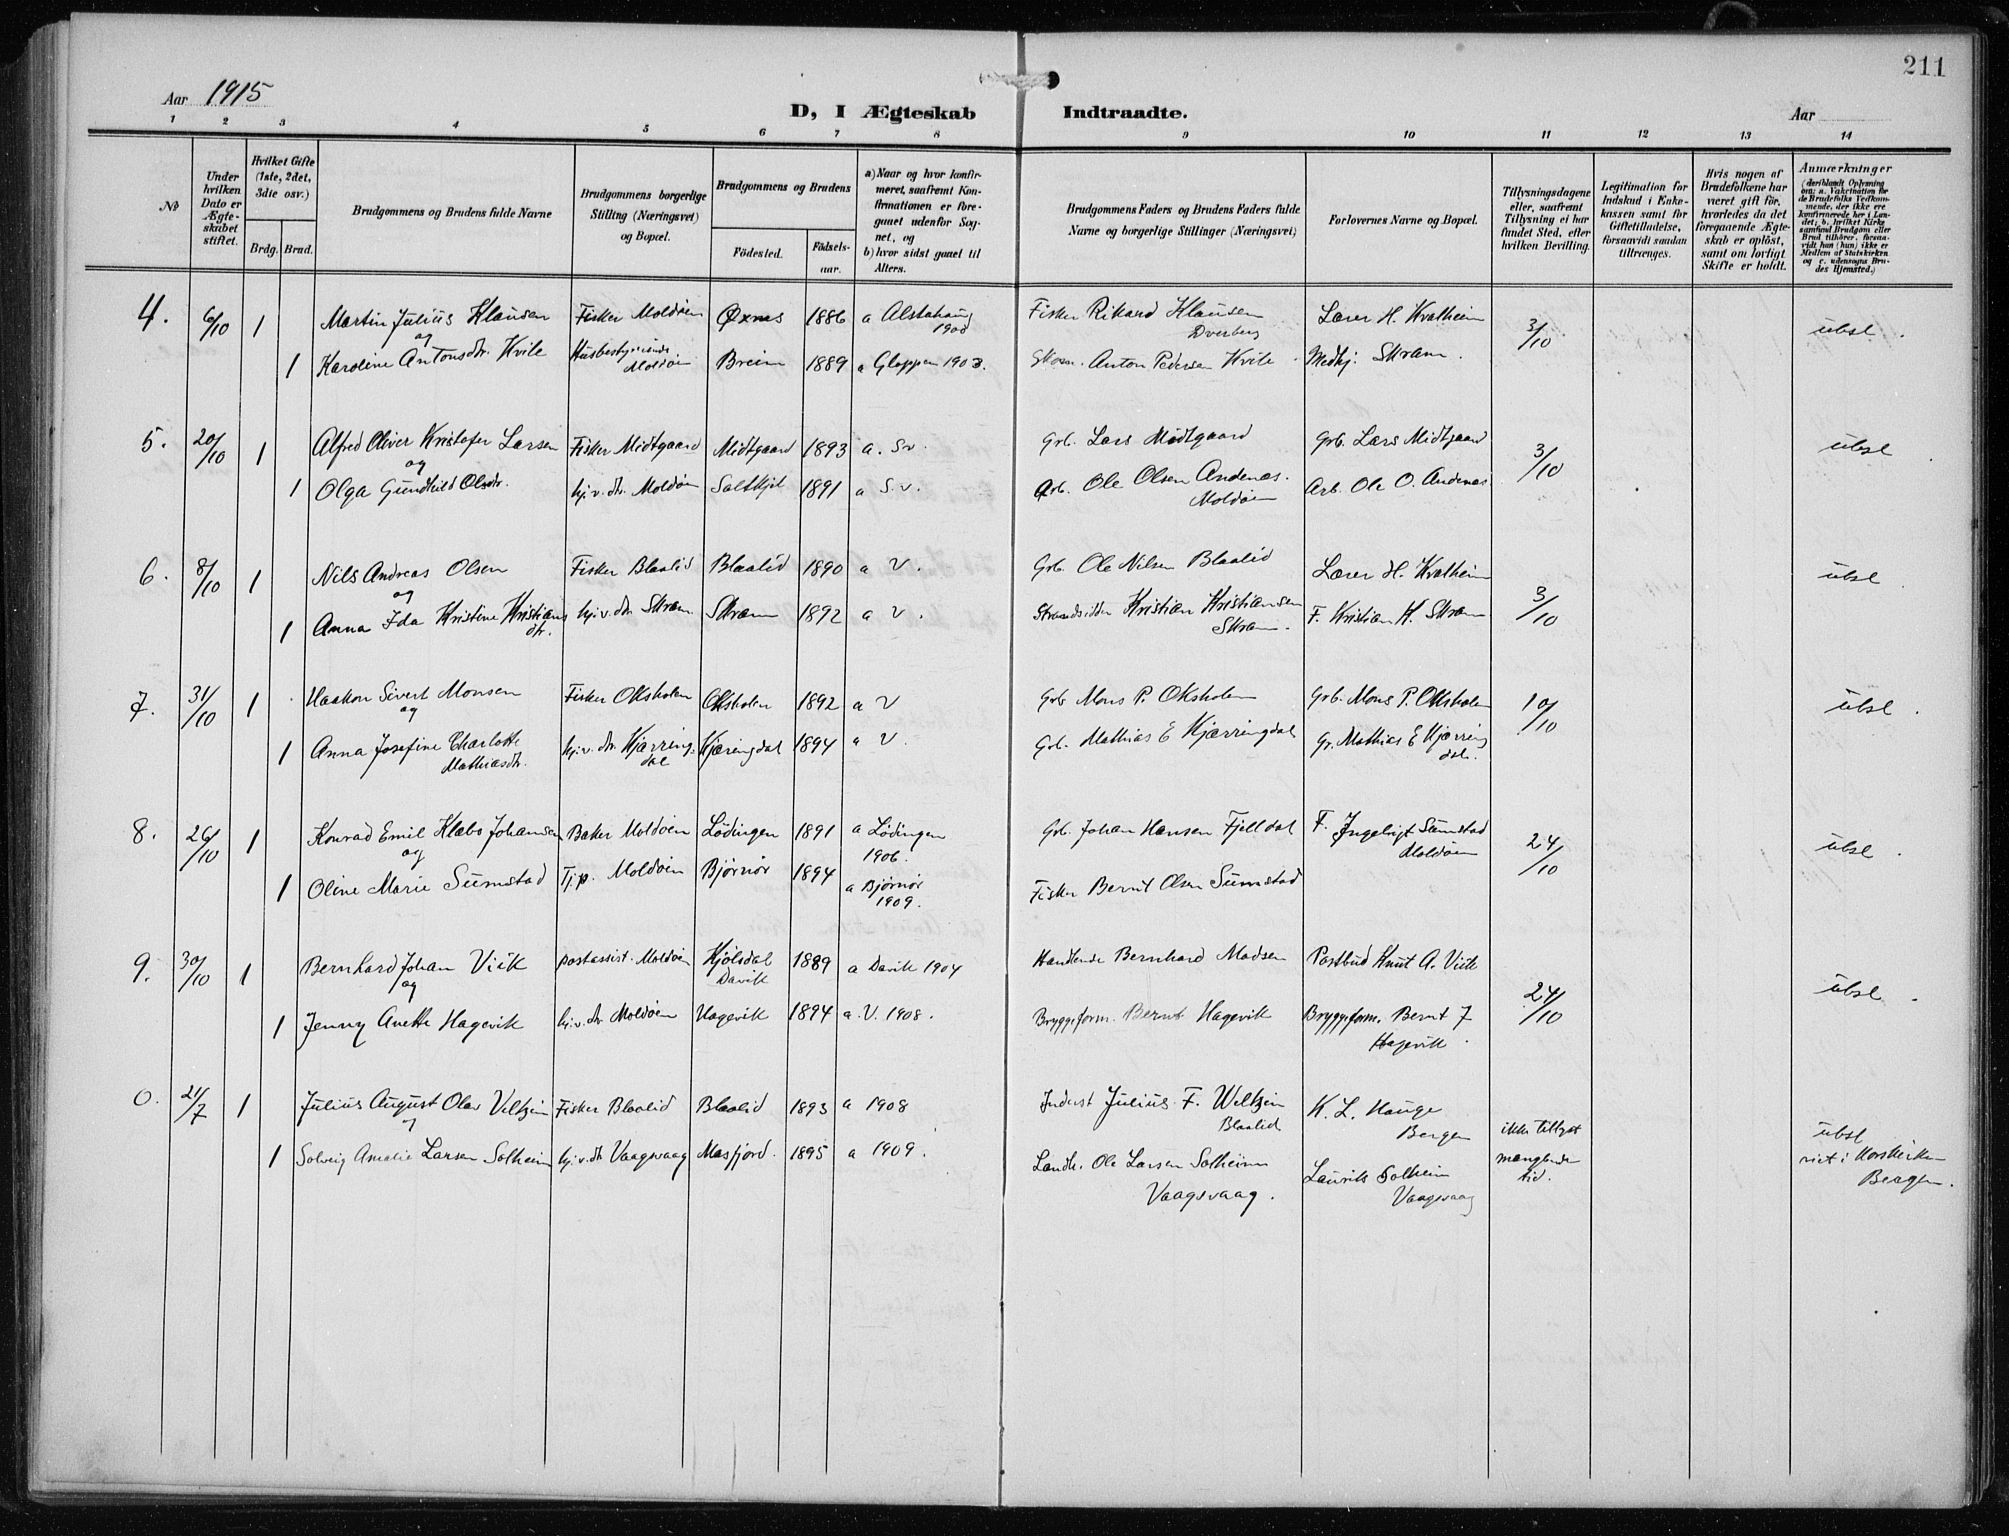 211
Aar 1915
D, I Ægteskab Indtraadte.
Aar
1 2 3 4 5 6 7 8 9 10 11 12 13 14
No
Under hvilken Dato er Ægteskabet stiftet.
Hvilket Gifte (1ste, 2det, 3die osv.)
Brdg. Brud.
Brudgommens og Brudens fulde Navne
Brudgommens borgerlige Stilling (Næringsvei) og Bopæl.
Brudgommens og Brudens
Födested.
Födselsaar.
a) Naar og hvor konfirmeret, saafremt Konfirmationen er foregaaet udenfor Sognet, og
b) hvor sidst gaaet til Alters.
Brudgommens Faders og Brudens Faders fulde Navne og borgerlige Stillinger (Næringsvei)
Forlovernes Navne og Bopæl.
Tillysningsdagene eller, saafremt Tillysning ei har fundet Sted, efter hvilken Bevilling.
Legitimation for Indskud i Enkekassen samt for Giftetilladelse, forsaavidt saadan tiltrænges.
Hvis nogen af Brudefolkene har været gift før, hvorledes da det foregaaende Ægteskab er opløst, samt om lovligt Skifte er holdt.
Anmærkninger (deriblandt Oplysning om: a. Vakcination for de Brudefolks Vedkommende, der ikke ere konfirmerede her i Landet; b. hvilket Kirkesamfund Brudgom eller Brud tilhører, forsaavidt han (hun) ikke er Medlem af Statskirken og c. udensogns Brudes Hjemsted.)
4. 6/10 1 Martin Julius Klausen Fisker Moldöen Øxnes 1886 a Alstahaug 1900 Fisker Rikard Klausen Dverberg Lærer H. Kvalheim 3/10 ubsl.
og
1 Karoline Antonsdtr. Kvile Husbestyrerinde Moldöen Breim 1889 a Gloppen 1903. Gbm. Anton Pedersen Kvile Medhj. Skram.
5. 20/10 1 Alfred Oliver Kristofer Larsen Fisker Midtgaard Midtgaard 1893 a. Sv. Grb. Lars Midtgaard Grb. Lars Midtgaard 3/10 ubsl
og
1 Olga Gundhild Olsdtr. hj.v. dtr. Moldöen Saltkjel 1891 a S.v. Arb. Ole Olsen Andenæs. Moldöen Arb. Ole O. Andenæs
6. 8/10 1 Nils Andreas Olsen Fisker Blaalid Blaalid 1890 a V. Grb. Ole Nilsen Blaalid Lærer H. Kvalheim 3/10 ubsl
og
1 Anna Ida Kristine Kristiansdtr. hj.v. dtr. Skram Skram 1892 a V. Strandsidder Kristian Kristiansen Skram. F. Kristian K. Skram
7. 31/10 1 Haakon Sivert Monsen Fisker Oksholen Oksholen 1892 a V Grb Mons P. Oksholen Grb. Mons P. Oksholen 10/10 ubsl.
og
1 Anna Josefine Charlotte Mathiasdtr. hj.v. dtr. Kjærringdal Kjæringdal 1894 a V. Grb. Mathias E Kjærringdal Gr. Mathias E Kjærringdal.
8. 26/10 1 Konrad Emil Klæbo Johansen Baker Moldöen Lödingen 1891 a Lödingen 1906. Grb. Johan Hansen Fjelldal F. Ingebrigt Sumstad Moldöen 24/10 ubsl.
og
1 Oline Marie Sumstad Tj.p. Moldöen Bjørnør 1894 a Bjørnør 1909. Fisker Bernt Olsen Sumstad
9. 30/10 1 Bernhard Johan Viik postassist. Moldöen Kjölsdal Davik 1889 a Davik 1904 Handlende Bernhard Madsen Postbud Knut A. Viik 24/10 ubsl.
og
1 Jenny Anette Hagevik hj.v. dtr Moldöen Hagevik 1894 a. V. 1908. Bryggeform. Bernt Hagevik Bryggeform. Bernt J Hagevik.
0. 21/7 1 Julius August Olav Veltzin Fisker Blaalid Blaalid 1893 a 1908 Inderst Julius F. Weltzin Blaalid K. L. Hauge Bergen ikke tillyst manglende tid. ubsl viet i Korskirken Bergen.
og
1 Solveig Amalie Larsen Solheim hj.v. dtr Vaagsvaag Masfjord. 1895 a 1909. Landh. Ole Larsen Solheim Vaagsvaag. Laurits Solheim Vaagsvaag